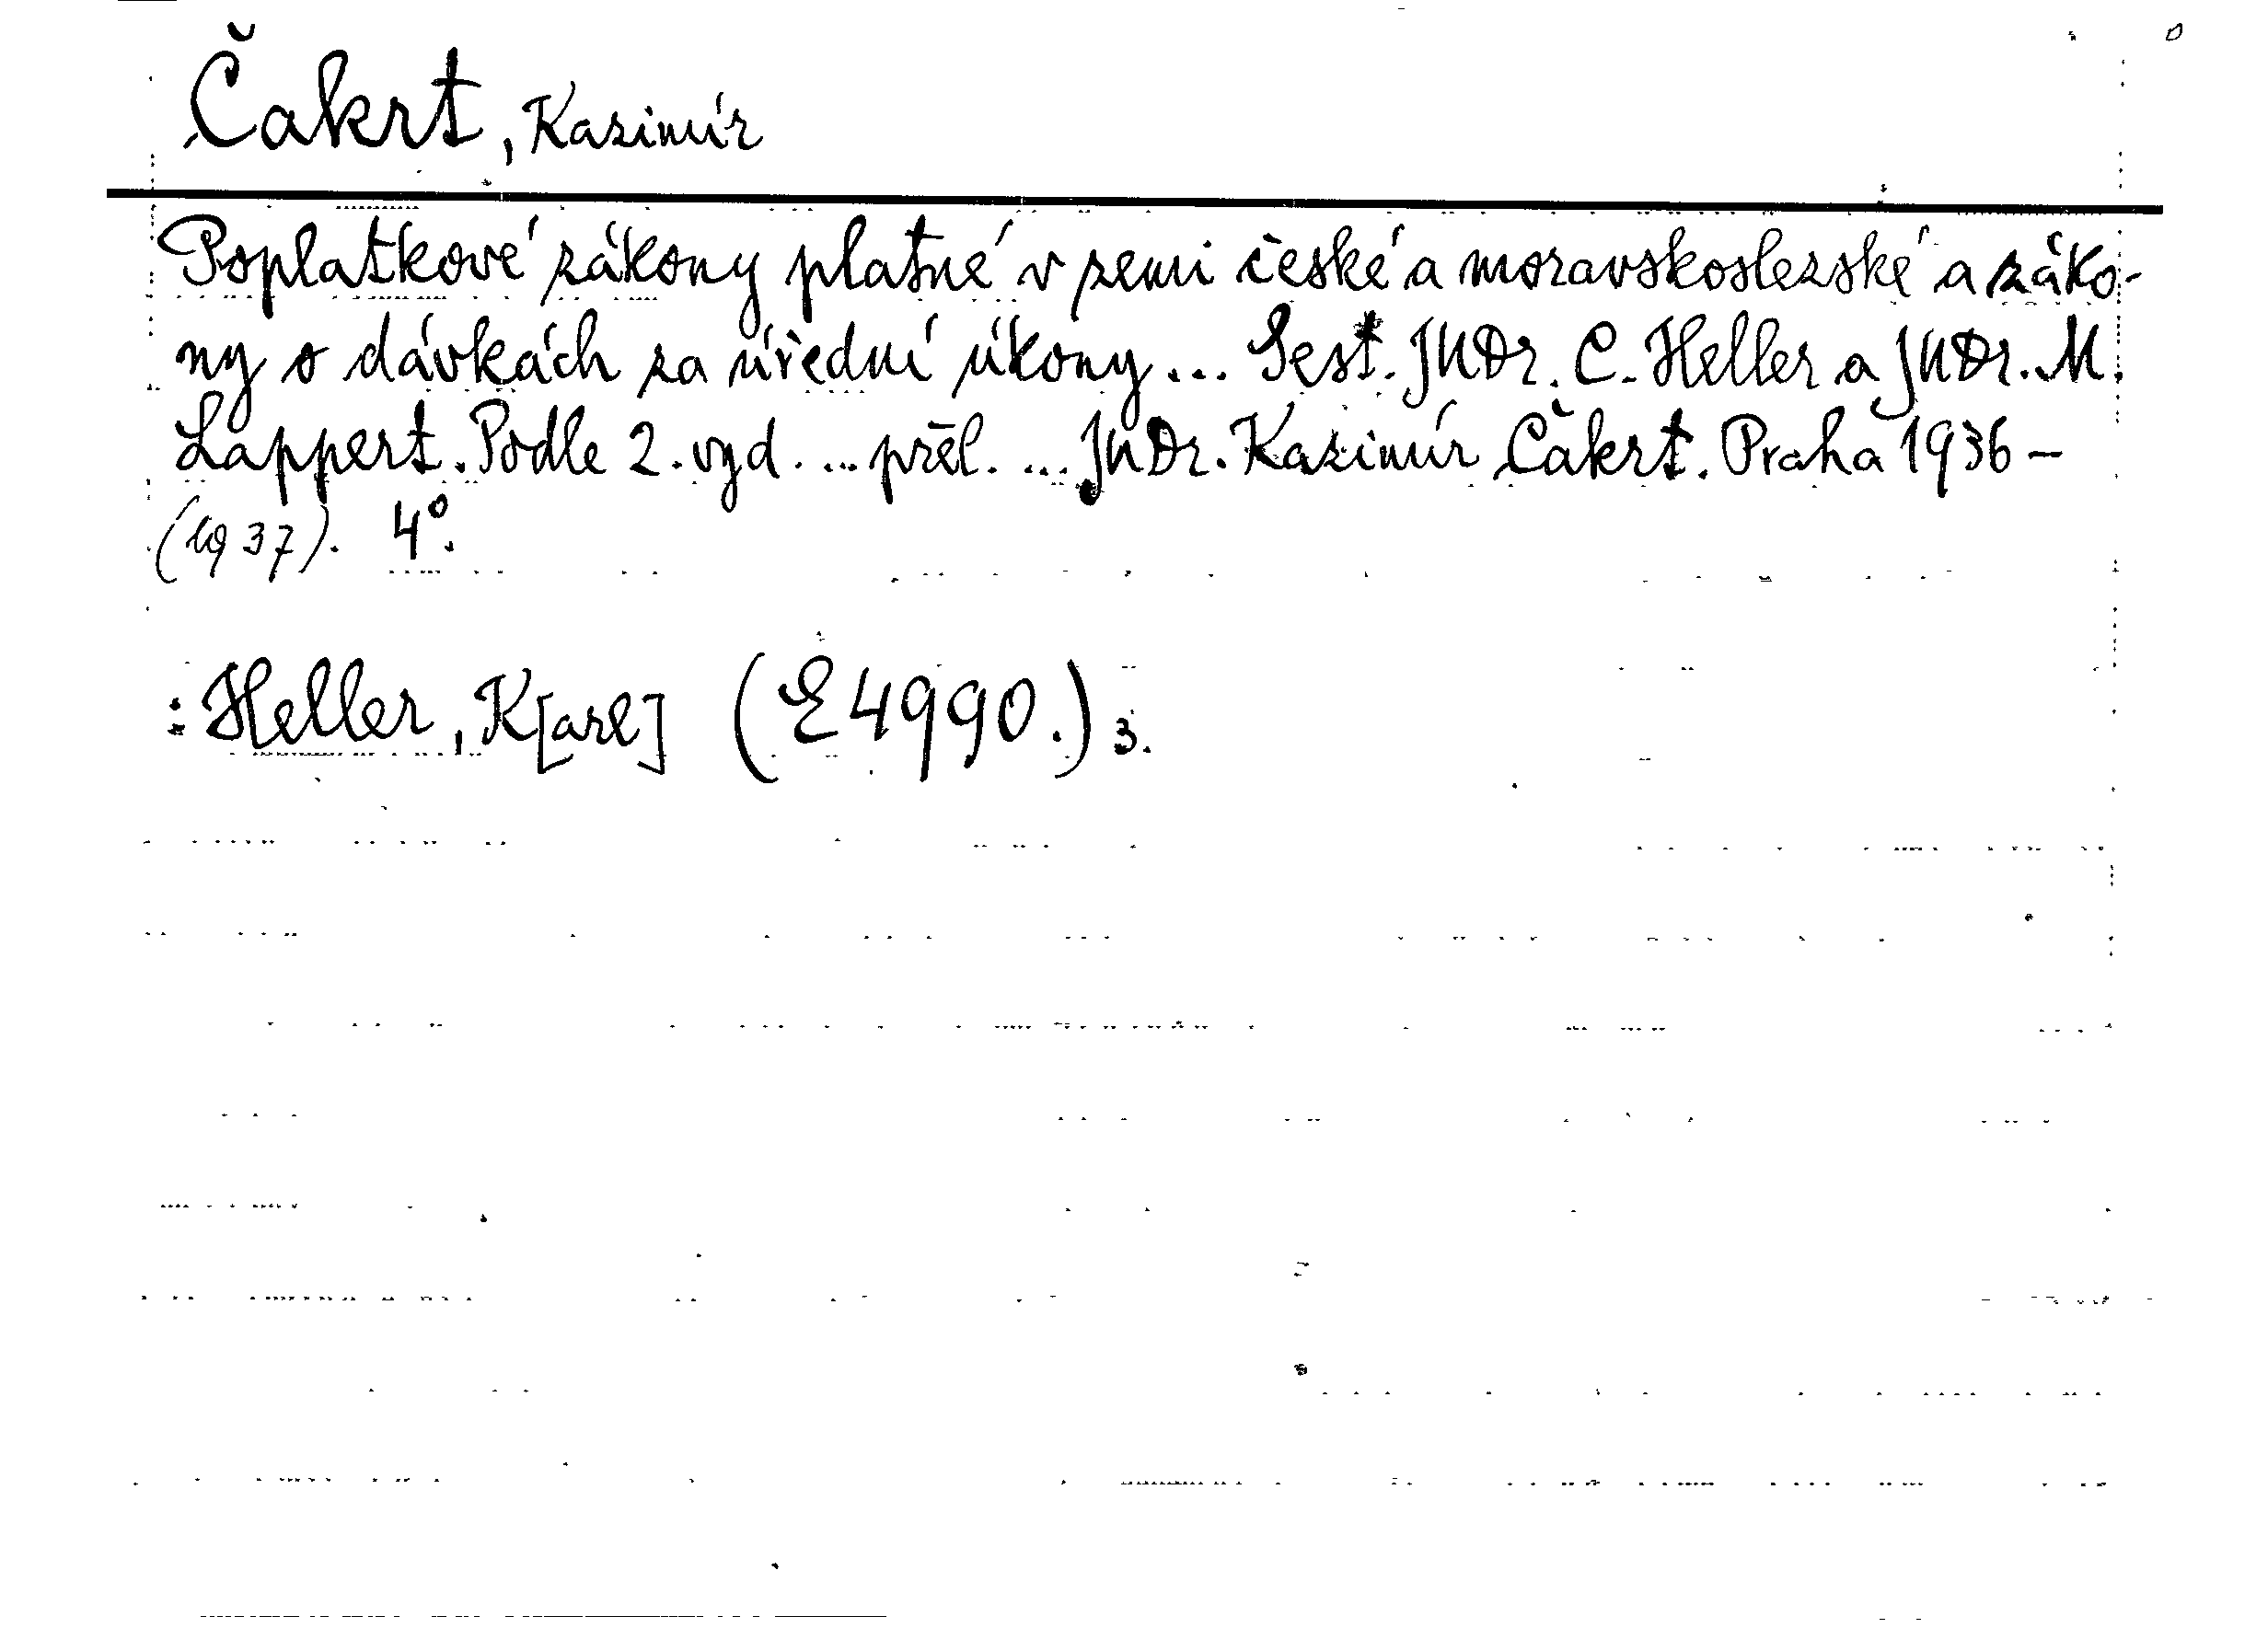 Čakrt, Kazimír
Poplatkové zákony platné v zemi české a moravskoslezské a záko-
ny o dávkách za úřední úkony ... Sest. JUDr. C. Heller a JUDr. M.
Lappert. Podle 2. vyd. ... přel. ... JUDr. Kazimír Čakrt. Praha 1936 –
(1937). 4°.
: Heller, K[arl] (E 4990.) 3.